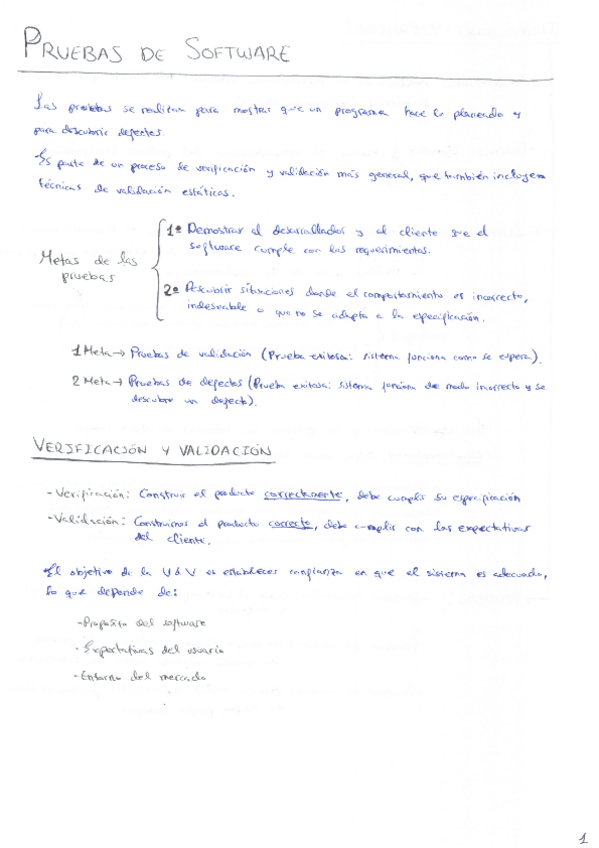 PRUEBAS DE SOFTWARE
Las pruebas se realizan para mostrar que un programa hace lo planeado y
para descubrir defectos.
Es parte de un proceso de verificación y validación más general, que también incluyen
técnicas de validación estáticas.
Metas de las
pruebas
1º Demostrar al desarrollador y al cliente que el
software cumple con los requerimientos.
2º Descubrir situaciones donde el comportamiento es incorrecto,
indeseable o que no se adapta a la especificación.
1 Meta → Pruebas de validación (Prueba exitosa: sistema funciona como se espera).
2 Meta → Pruebas de defectos (Prueba exitosa: sistema funciona de modo incorrecto y se
descubre un defecto).
VERIFICACIÓN Y VALIDACIÓN
- Verificación: Construir el producto correctamente, debe cumplir su especificación
- Validación: Construimos el producto correcto, debe cumplir con las expectativas
del cliente.
El objetivo de la V & V es establecer confianza en que el sistema es adecuado,
lo que depende de:
- Propósito del software
- Expectativas del usuario
- Entorno del mercado
1